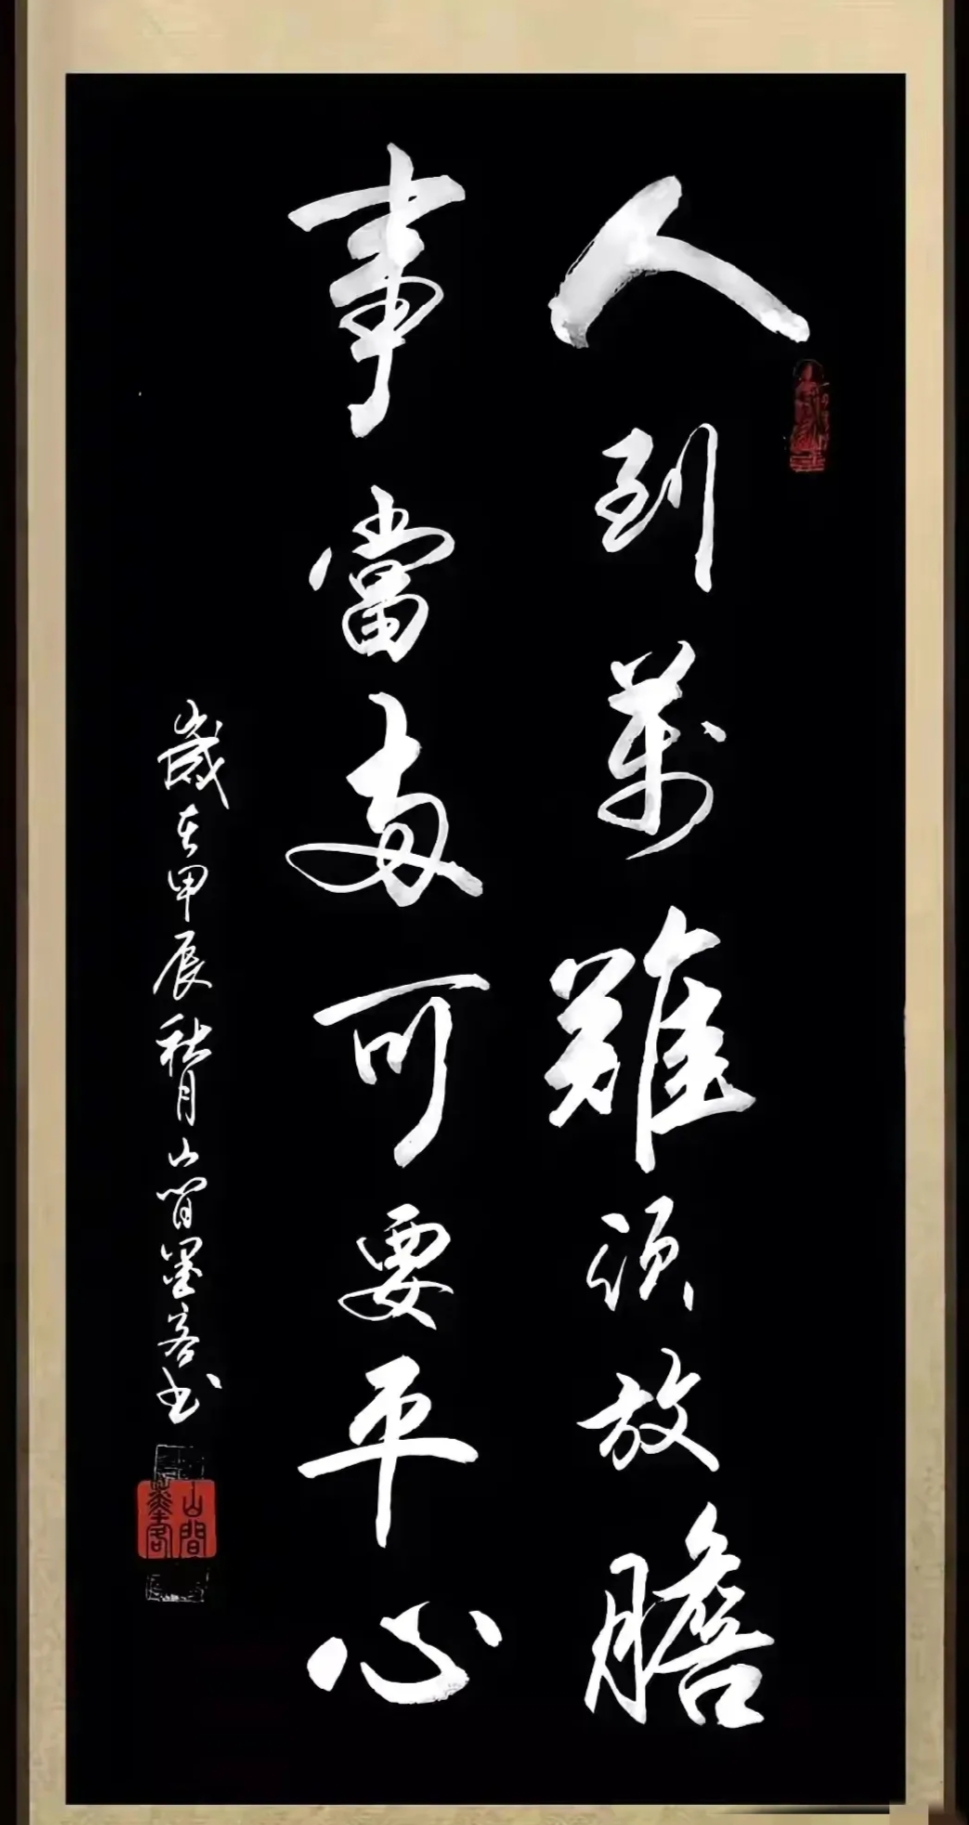 人到萬難須放膽
事當兩可要平心
歲在甲辰秋月山間墨客書
山間墨客